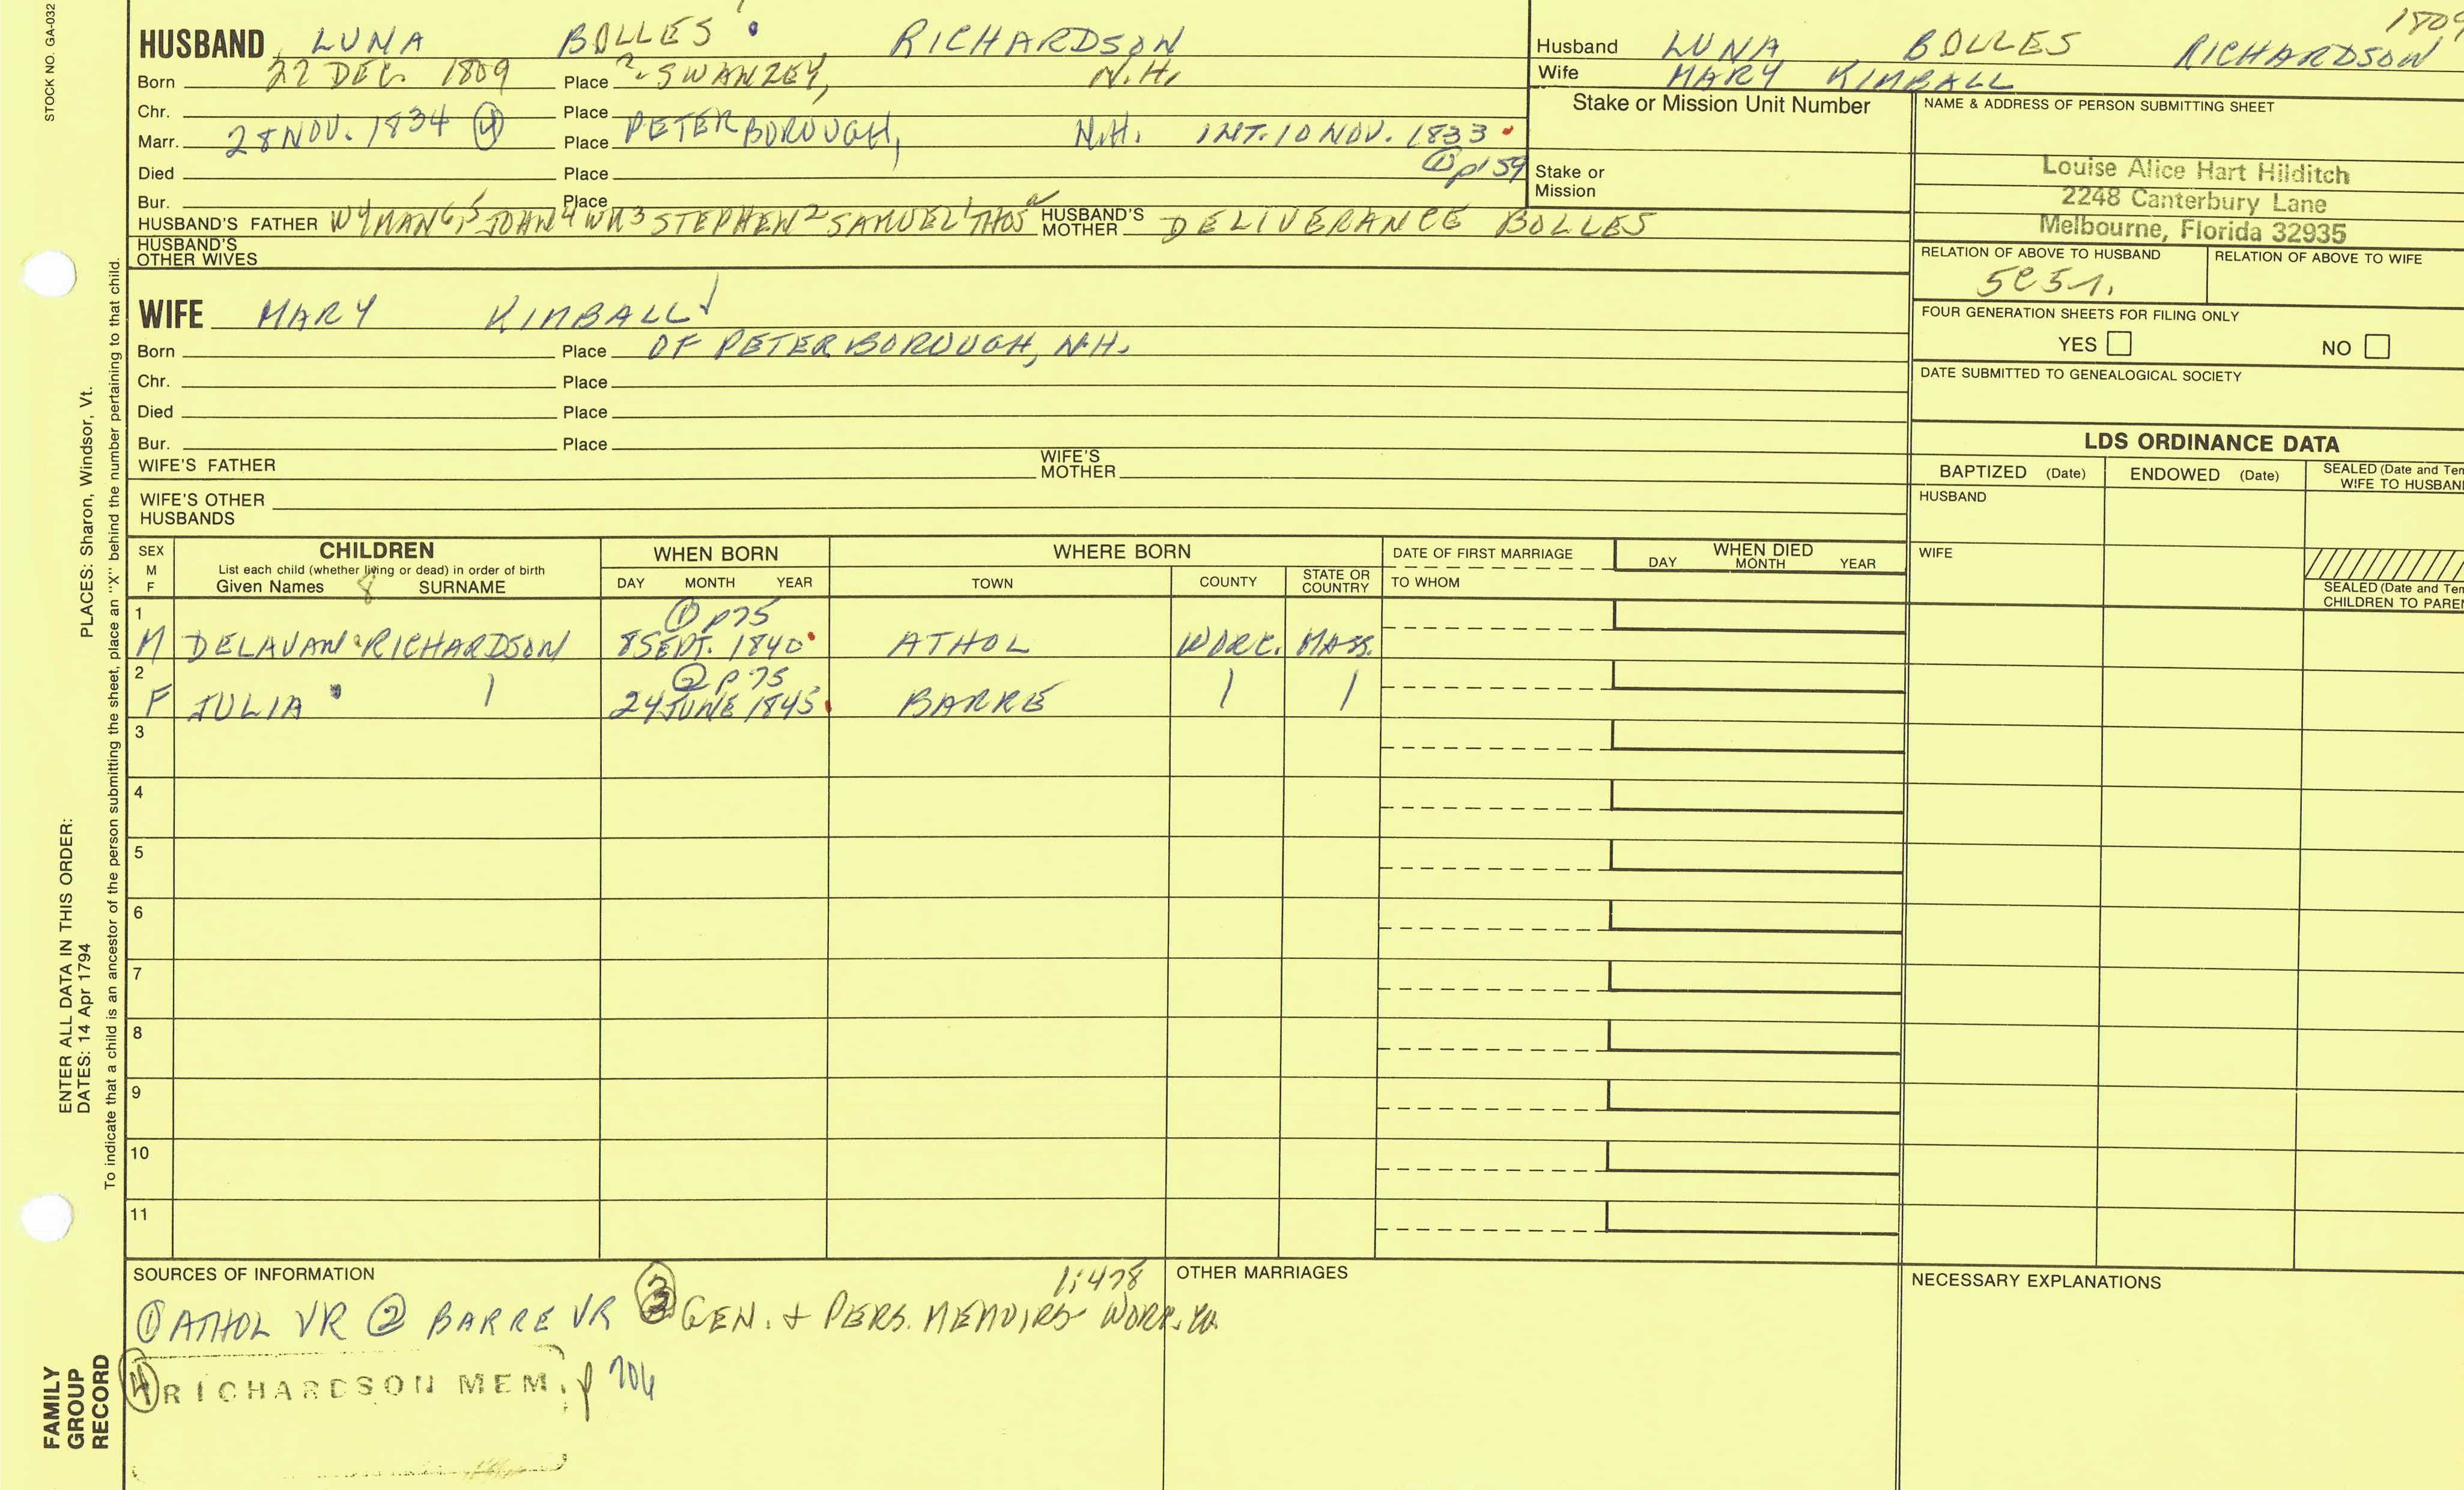 STOCK NO. GA-032
HUSBAND LUNA BOLLES RICHARDSON
Born 22 DEC. 1809 Place ? SWANZEY, N.H.
Chr. Place
Marr. 28 NOV. 1834 ④ Place PETERBOROUGH, N.H. INT. 10 NOV. 1833
① p 159
Died Place
Bur. Place
HUSBAND'S FATHER WYMAN6, 5JOHN 4WM 3STEPHEN 2SAMUEL 1THOS HUSBAND'S MOTHER DELIVERANCE BOLLES
HUSBAND'S OTHER WIVES
WIFE MARY KIMBALL
Born Place OF PETERBOROUGH, N.H.
Chr. Place
Died Place
Bur. Place
WIFE'S FATHER WIFE'S MOTHER
WIFE'S OTHER HUSBANDS
1809
Husband LUNA BOLLES RICHARDSON
Wife MARY KIMBALL
Stake or Mission Unit Number
Stake or Mission
NAME & ADDRESS OF PERSON SUBMITTING SHEET
Louise Alice Hart Hilditch
2248 Canterbury Lane
Melbourne, Florida 32935
RELATION OF ABOVE TO HUSBAND RELATION OF ABOVE TO WIFE
FOUR GENERATION SHEETS FOR FILING ONLY
YES NO
DATE SUBMITTED TO GENEALOGICAL SOCIETY
LDS ORDINANCE DATA
BAPTIZED (Date) ENDOWED (Date) SEALED (Date and Tem
WIFE TO HUSBAN
HUSBAND
WIFE
SEALED (Date and Tem
CHILDREN TO PAREN
SEX M F CHILDREN WHEN BORN WHERE BORN DATE OF FIRST MARRIAGE WHEN DIED
List each child (whether living or dead) in order of birth
Given Names SURNAME DAY MONTH YEAR TOWN COUNTY STATE OR COUNTRY TO WHOM DAY MONTH YEAR
8
1 ① p 75
M DELAVAN RICHARDSON 8 SEPT. 1840 ATHOL WORC. MASS.
2 ② p 75
F JULIA 24 JUNE 1845 BARRE
3
4
5
6
7
8
9
10
11
SOURCES OF INFORMATION 1:478
① ATHOL VR ② BARRE VR ③ GEN. & PERS. MEMOIRS WORC. Co.
④ RICHARDSON MEM. p 704
OTHER MARRIAGES
NECESSARY EXPLANATIONS
PLACES: Sharon, Windsor, Vt.
To indicate that a child is an ancestor of the person submitting the sheet, place an "X" behind the number pertaining to that child.
ENTER ALL DATA IN THIS ORDER:
DATES: 14 Apr 1794
FAMILY
GROUP
RECORD